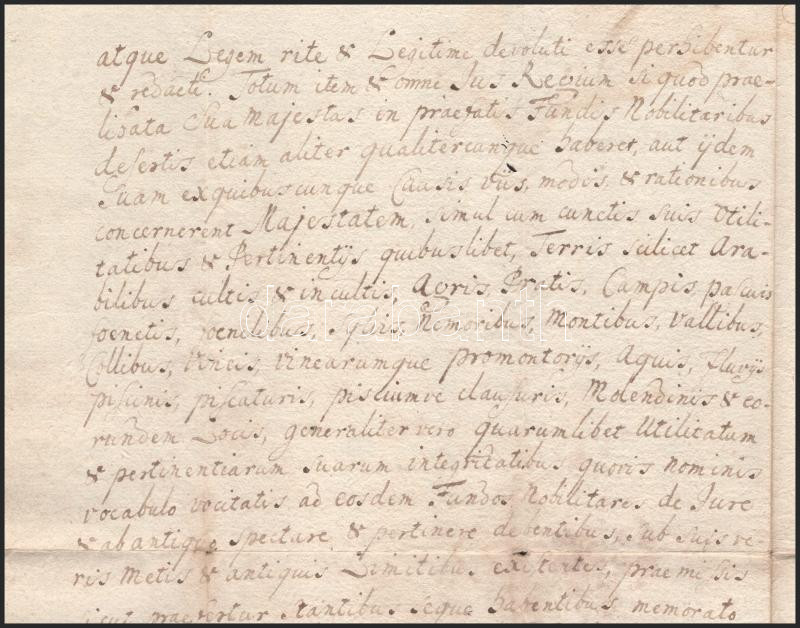 atque Legem rite & Legitime devoluti esse perhibentur
& redacti. Totum item & omne Jus Regium si quod prae-
libata Sua Majestas in praefatis Fundis Nobilitaribus
desertis etiam aliter qualitercunque haberet, aut ijdem
Suam exquibuscunque Causis viis, modis, & rationibus
concernerent Majestatem, simul cum cunctis suis Utili-
tatibus & Pertinentijs quibuslibet, Terris scilicet Ara-
bilibus cultis & incultis, Agris Pratis, Campis, pascuis
foenetis, foenilibus, Sylvis, Nemoribus, Montibus, Vallibus,
Collibus, Vineis, vinearumque promontorijs, Aquis, Fluvijs
piscinis, piscaturis, pisciumve clausuris, Molendinis & eo-
rundem Locis, generaliter vero Quarumlibet Utilitatum
& pertinentiarum suarum integritatibus quovis nominis
vocabulo vocitatis ad eosdem Fundos Nobilitares de Jure
& ab antiquo spectare & pertinere debentibus, sub suis ve-
ris Metis & antiquis Limitibus existentes, praemissis
sicut praefertur stantibus seque habentibus memorato
darabanth